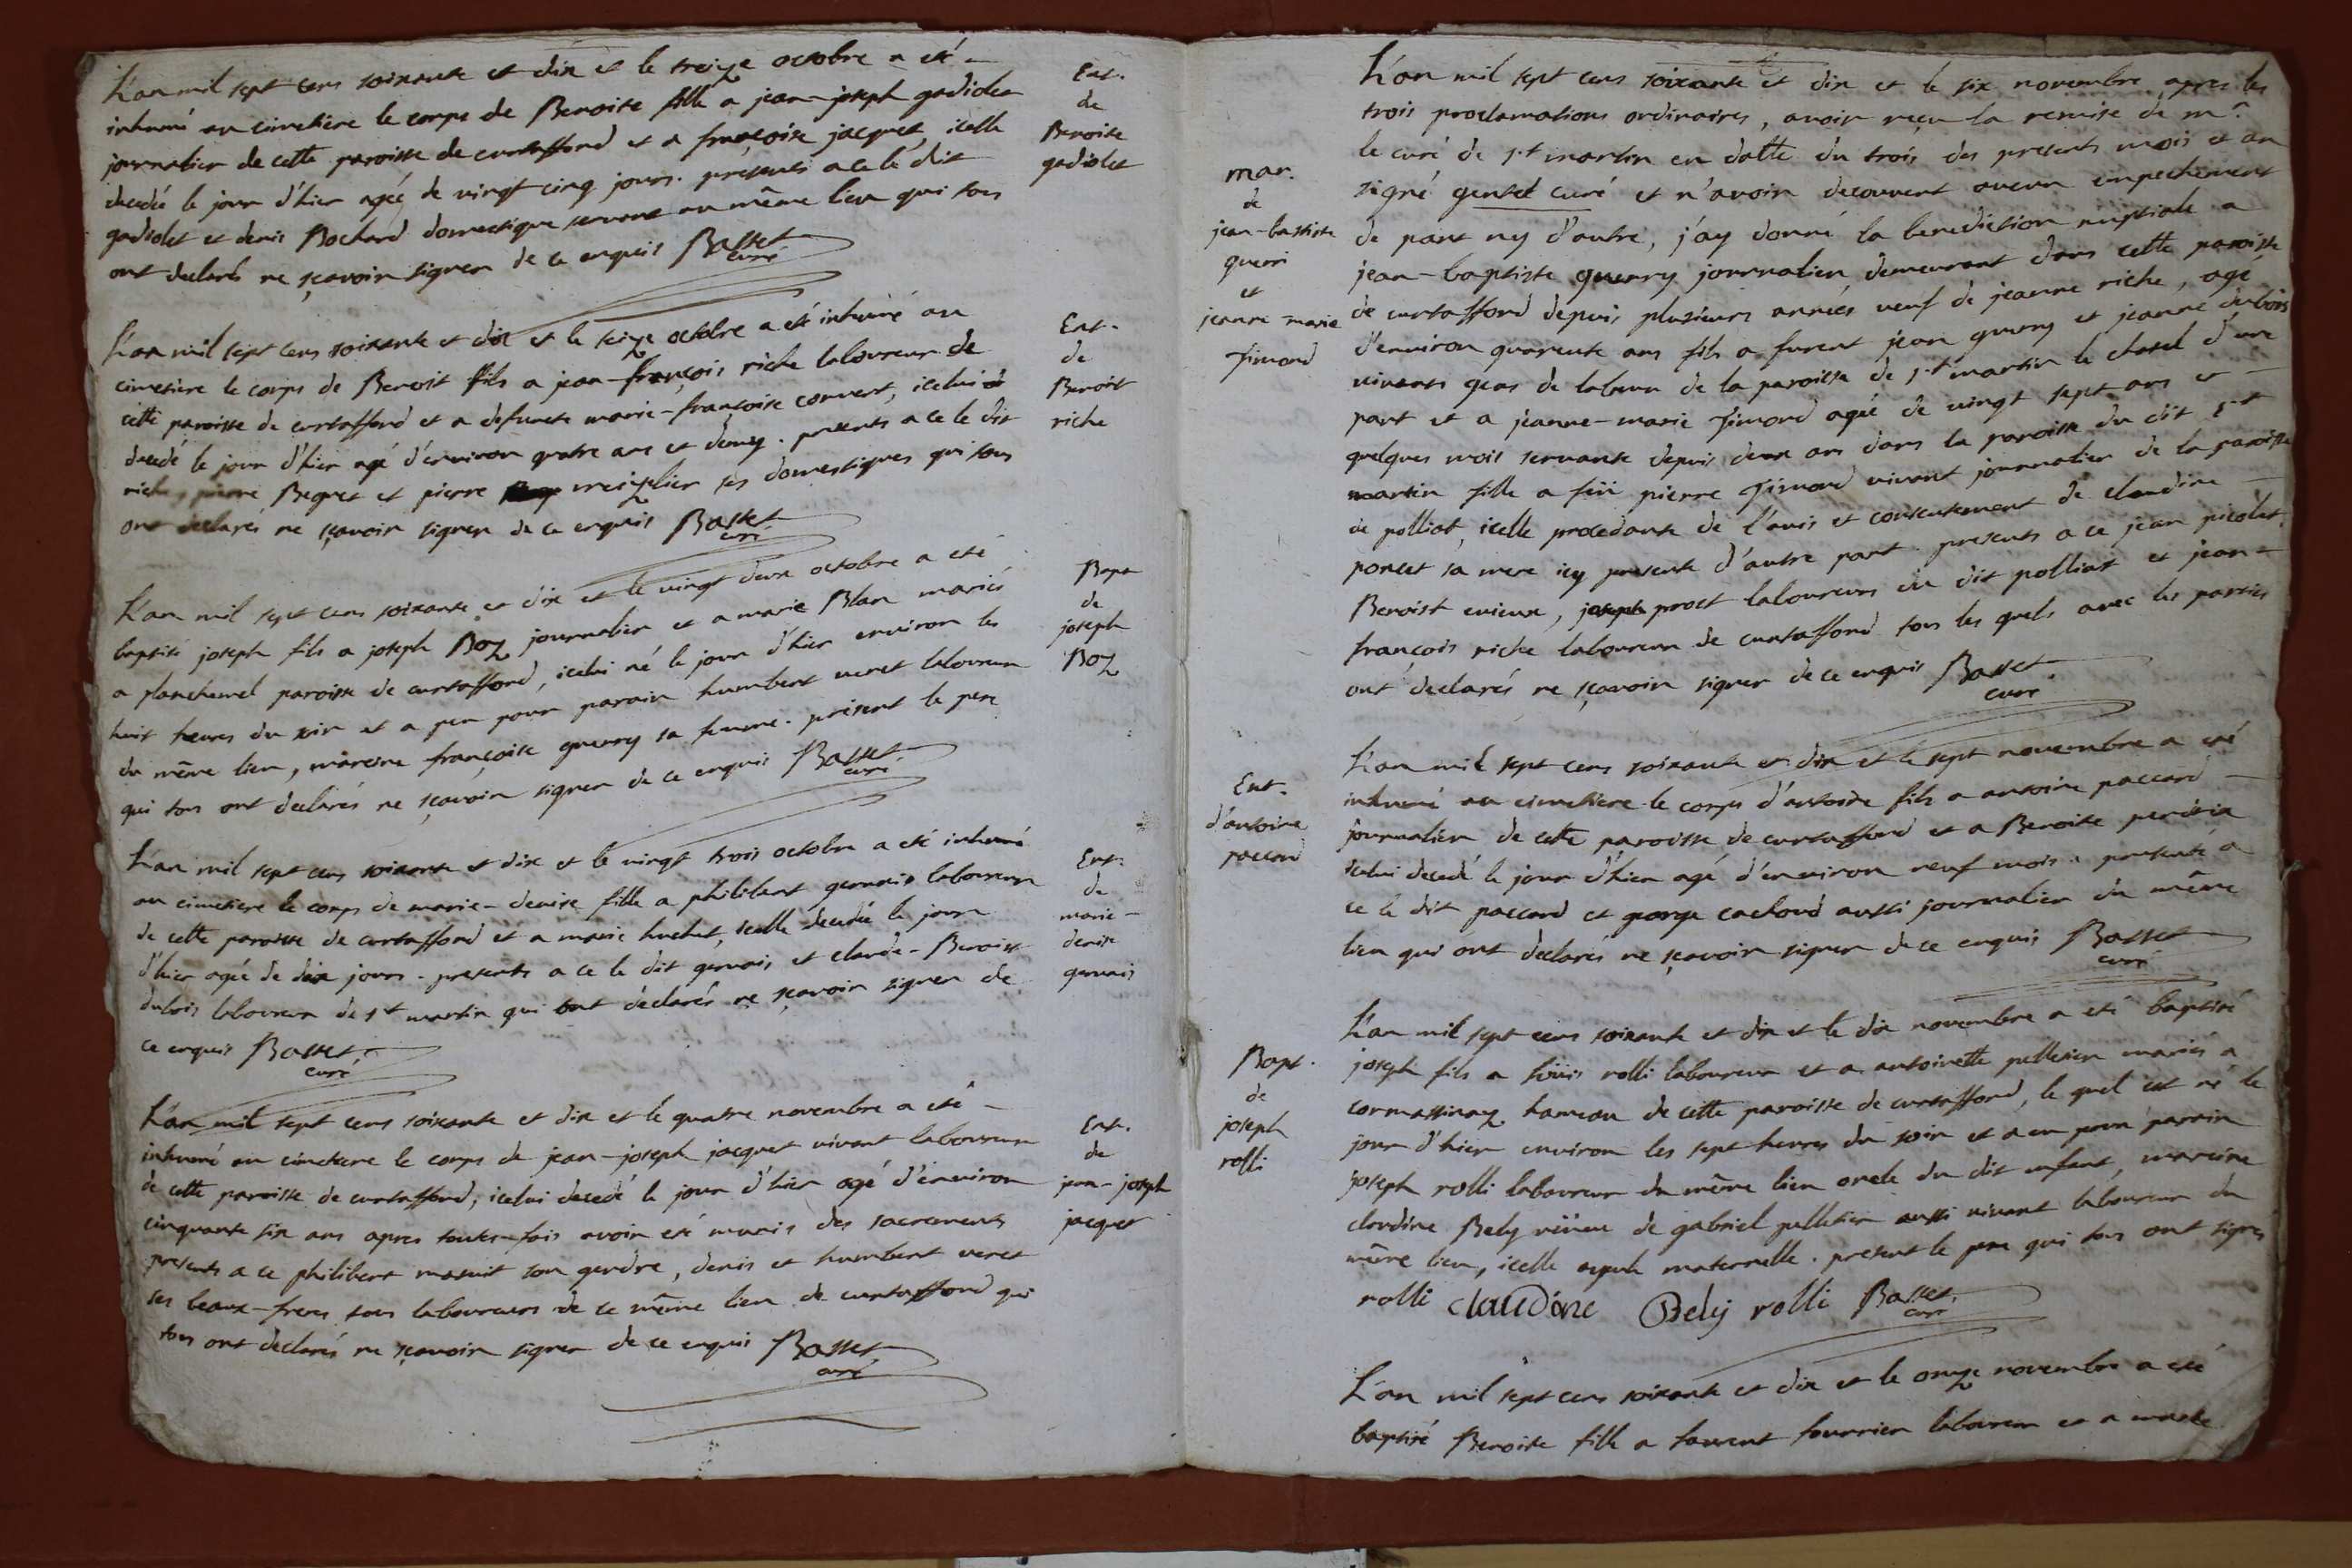 L'an mil sept cens soixante et dix et le treize octobre a été
inhumé au cimetière le corps de Benoite fille a jean-joseph gadiolet
journalier de cette paroisse de curtaffond et a françoise jacquet, icelle
decedée le jour d'hier agée de vingt cinq jours. présents a ce le dit
gadiolet et denis Bochard domestique servant au même lieu qui tous
ont declarés ne sçavoir signer de ce enquis Basset
curé
Ent.
de
Benoite
gadiolet
L'an mil sept cens soixante et dix et le seize octobre a été inhumé au
cimetière le corps de Benoit fils a jean-françois riche laboureur de
cette paroisse de curtaffond et a defuncte marie-françoise convert, icelui
decedé le jour d'hier agé d'environ quatre ans et demy. presents a ce le dit
riche, pierre Begret et pierre ses domestiques qui tous
ont declarés ne sçavoir signer de ce enquis Basset
curé
Ent.
de
Benoit
riche
L'an mil sept cens soixante et dix et le vingt deux octobre a été
baptisé joseph fils a joseph Boz journalier et a marie Blan mariés
a planchemel paroisse de curtaffond, icelui né le jour d'hier environ les
huit heures du soir et a peu pour parain humbert veret laboureur
du même lieu, mareine françoise guerry sa femme. présent le pere
qui tous ont declarés ne sçavoir signer de ce enquis Basset
curé
Bapt
de
joseph
Boz
L'an mil sept cens soixante et dix et le vingt trois octobre a été inhumé
au cimetiere le corps de marie-denise fille a philibert gervais laboureur
de cette paroisse de curtaffond et a marie huchet, icelle decedée le jour
d'hier agée de dix jours. presents a ce le dit gervais et claude-Benoist
dubois laboureur de st martin qui ont declarés ne sçavoir signer de
ce enquis Basset
curé
Ent.
de
marie-
denise
gervais
L'an mil sept cens soixante et dix et le quatre novembre a été
inhumé au cimetiere le corps de jean-joseph jacquet vivant laboureur
de cette paroisse de curtaffond, icelui decedé le jour d'hier agé d'environ
cinquante six ans apres toutes-fois avoir eté munis des sacrements
presents a ce philibert masuit son gendre, denis et humbert veret
ses beaux-freres tous laboureurs de ce même lieu de curtaffond qui
tous ont declarés ne sçavoir signer de ce enquis Basset
curé
Ent.
de
jean-joseph
jacquet
L'an mil sept cens soixante et dix et le six novembre apres les
trois proclamations ordinaires, avoir reçu la remise de mr
le curé de st martin en datte du trois des presents mois et an
signé gentet curé et n'avoir decouvert aucun empechement
de part ny d'autre, j'ay donné la benediction nuptiale a
jean-baptiste guerry journalier demeurant dans cette paroisse
de curtaffond depuis plusieurs années veuf de jeanne riche, agé
d'environ quarente ans fils a furent jean guerry et jeanne dubois
vivants gens de labeur de la paroisse de st martin le chatel d'une
part et a jeanne-marie Timond agée de vingt sept ans et
quelques mois servante depuis deux ans dans la paroisse du dit st
martin fille a feü pierre Timond vivant journalier de la paroisse
de polliat, icelle procedante de l'avis et consentement de claudine
poncet sa mere icy presente d'autre part. presents a ce jean picolet,
Benoist evieux, joseph prost laboureurs du dit polliat et jean-
françois riche laboureur de curtaffond tous les quels avec les parties
ont declarés ne sçavoir signer de ce enquis Basset
curé
mar.
de
jean-baptiste
guerri
et
jeanne marie
Timond
L'an mil sept cens soixante et dix et le sept novembre a eté
inhumé au cimetiere le corps d'antoine fils a antoine paccard
journalier de cette paroisse de curtaffond et a Benoite
icelui decedé le jour d'hier agé d'environ neuf mois. presents a
ce le dit paccard et george cachoud aussi journalier du même
lieu qui ont declarés ne sçavoir signer de ce enquis Basset
curé
Ent.
d'antoine
paccard
L'an mil sept cens soixante et dix et le dix novembre a eté baptisé
joseph fils a loüis rolli laboureur et a antoinette pelletier mariés a
cormassinaz hameau de cette paroisse de curtaffond, le quel est né le
jour d'hier environ les sept heures du soir et a eu pour parrin
joseph rolli laboureur du même lieu oncle du dit enfant, mareine
claudine Bely vëüve de gabriel pelletier aussi vivant laboureur du
même lieu, icelle ayeule maternelle. present le pere qui tous ont signes
rolli claudine Bely rolli Basset
curé
Bapt.
de
joseph
rolli
L'an mil sept cens soixante et dix et le onze novembre a eté
baptisé Benoite fille a laurent fournier laboureur et a